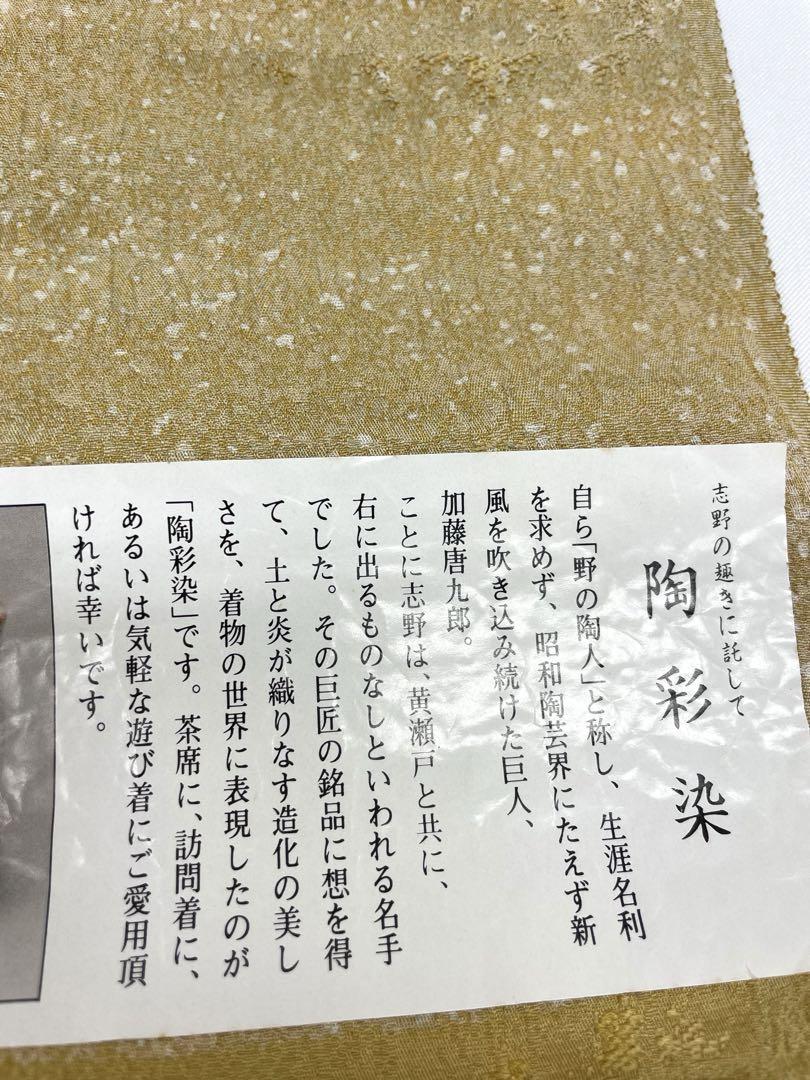 志野の趣きに託して
陶彩染
自ら「野の陶人」と称し、生涯名利
を求めず、昭和陶芸界にたえず新
風を吹き込み続けた巨人、
加藤唐九郎。
ことに志野は、黄瀬戸と共に、
右に出るものなしといわれる名手
でした。その巨匠の銘品に想を得
て、土と炎が織りなす造化の美し
さを、着物の世界に表現したのが
「陶彩染」です。茶席に、訪問着に、
あるいは気軽な遊び着にご愛用頂
ければ幸いです。